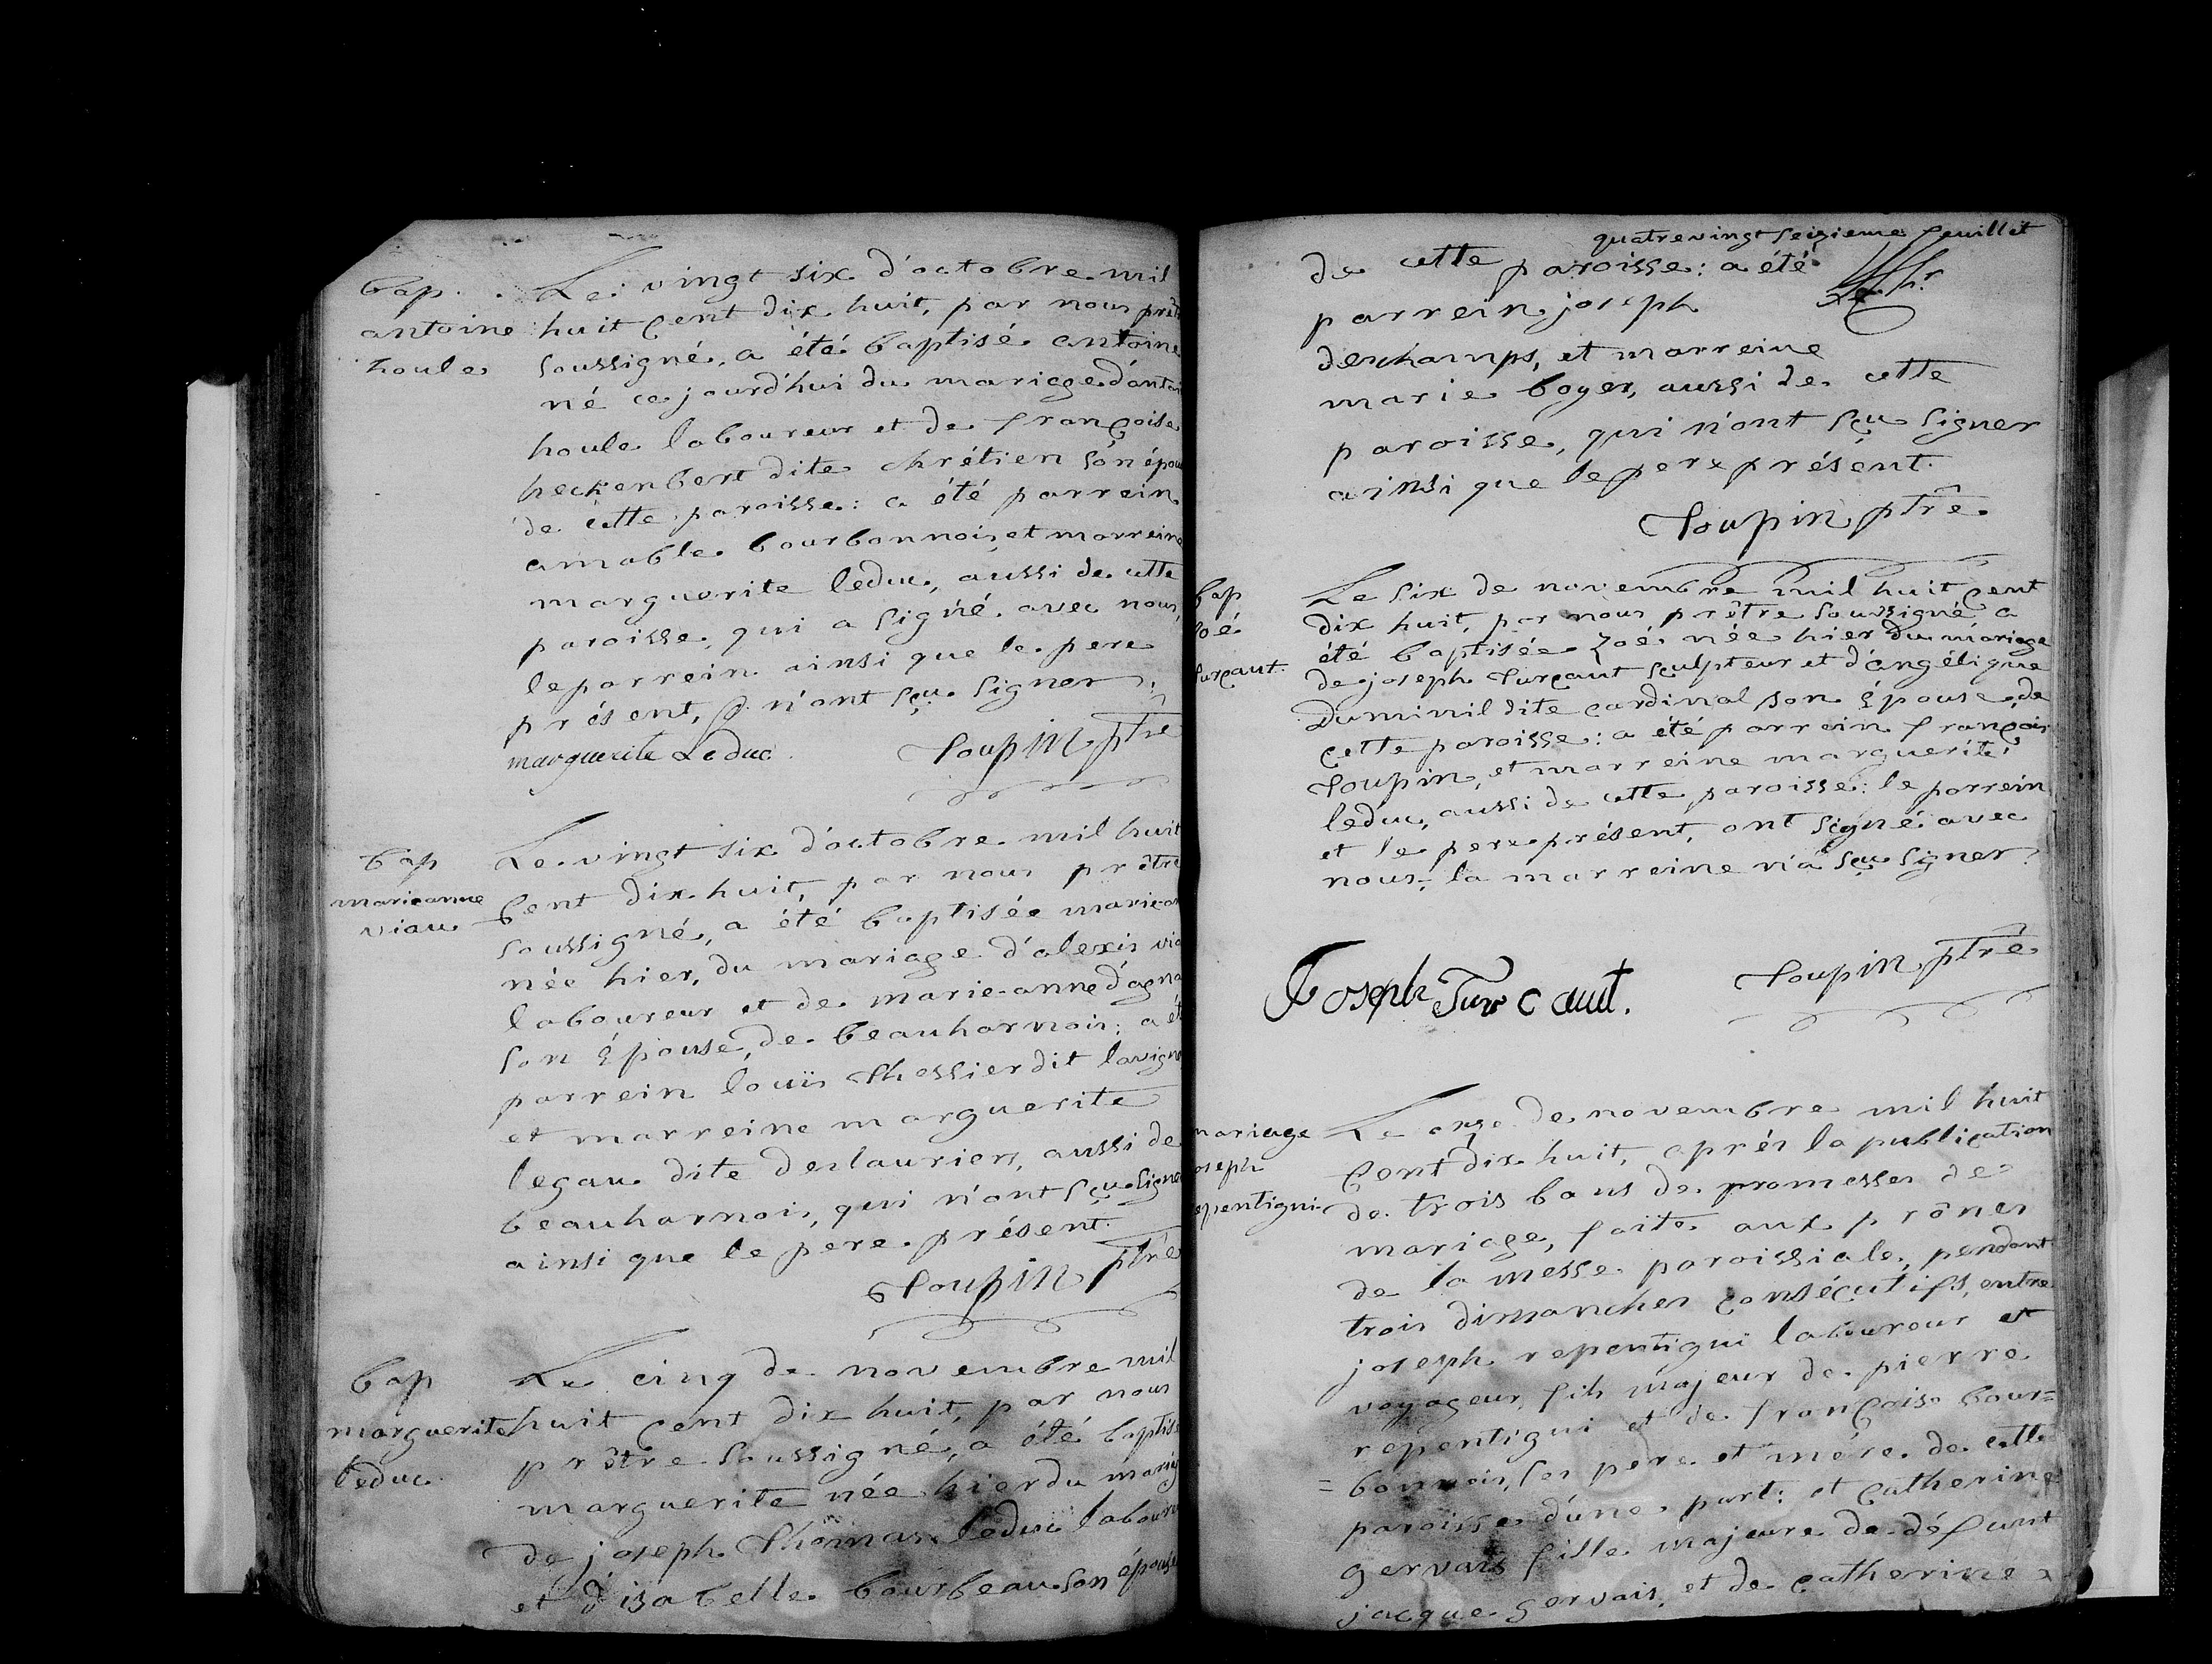 Bap.
antoine
houle
Le vingt six d'octobre mil
huit cent dix huit, par nous prêt
soussigné, a été baptisé antoine
né ce jourd'hui du mariage d'antoi
houle laboureur et de françoise
heckenbert dite chrétien son épou
de cette paroisse: a été parrein
amable bourbonnois et marreine
marguerite leduc, aussi de cette
paroisse, qui a signé avec nous,
le parrein ainsi que le pere
présent, n'ont sçu signer.
marguerite Leduc Toupin ptre
bap
marieanne
viau
Le vingt six d'octobre mil huit
cent dix huit, par nous prêtre
soussigné, a été baptisée marie-an
née hier, du mariage d'alexis via
laboureur et de marie-anne d'agna
son épouse, de beauharnois: a ét
parrein louis Thessier dit lavigne
et marreine marguerite
legau dite deslauriers, aussi de
beauharnois, qui n'ont sçu signe
ainsi que le pere présent.
Toupin ptre
bap
marguerite
leduc
Le cinq de novembre mil
huit cent dix huit, par nous
prêtre soussigné, a été baptisé
marguerite née hier du mariag
de joseph Thomas leduc laboure
et d'isabelle bourbeau son épouse
quatrevingt seizieme feuillet
de cette paroisse: a été
parrein joseph
deschamps, et marreine
marie boyer, aussi de cette
paroisse, qui n'ont sçu signer
ainsi que le pere présent.
Toupin ptre
bap
zoé
turcaut
Le six de novembre mil huit cent
dix huit, par nous prêtre soussigné a
été baptisée zoé née hier du mariage
de joseph Turcaut sculpteur et d'angélique
Duminil dite cardinal son épouse, de
cette paroisse: a été parrein françois
Toupin, et marreine marguerite
leduc, aussi de cette paroisse: le parrein
et le pere présent, ont signé avec
nous; la marreine n'a sçu signer
Joseph Turcaut. Toupin ptre
mariage
oseph
epentigni
Le onze de novembre mil huit
cent dix huit, après la publication
de trois bans de promesses de
mariage, faite aux prônes
de la messe paroissiale, pendant
trois dimanches consécutifs, entre
joseph repentigni laboureur et
voyageur, fils majeur de pierre
repentigni et de françoise bour=
=bonnois, ses pere et mére de cette
paroisse d'une part: et catherine
gervais fille majeure de défunt
jacque gervais, et de catherine